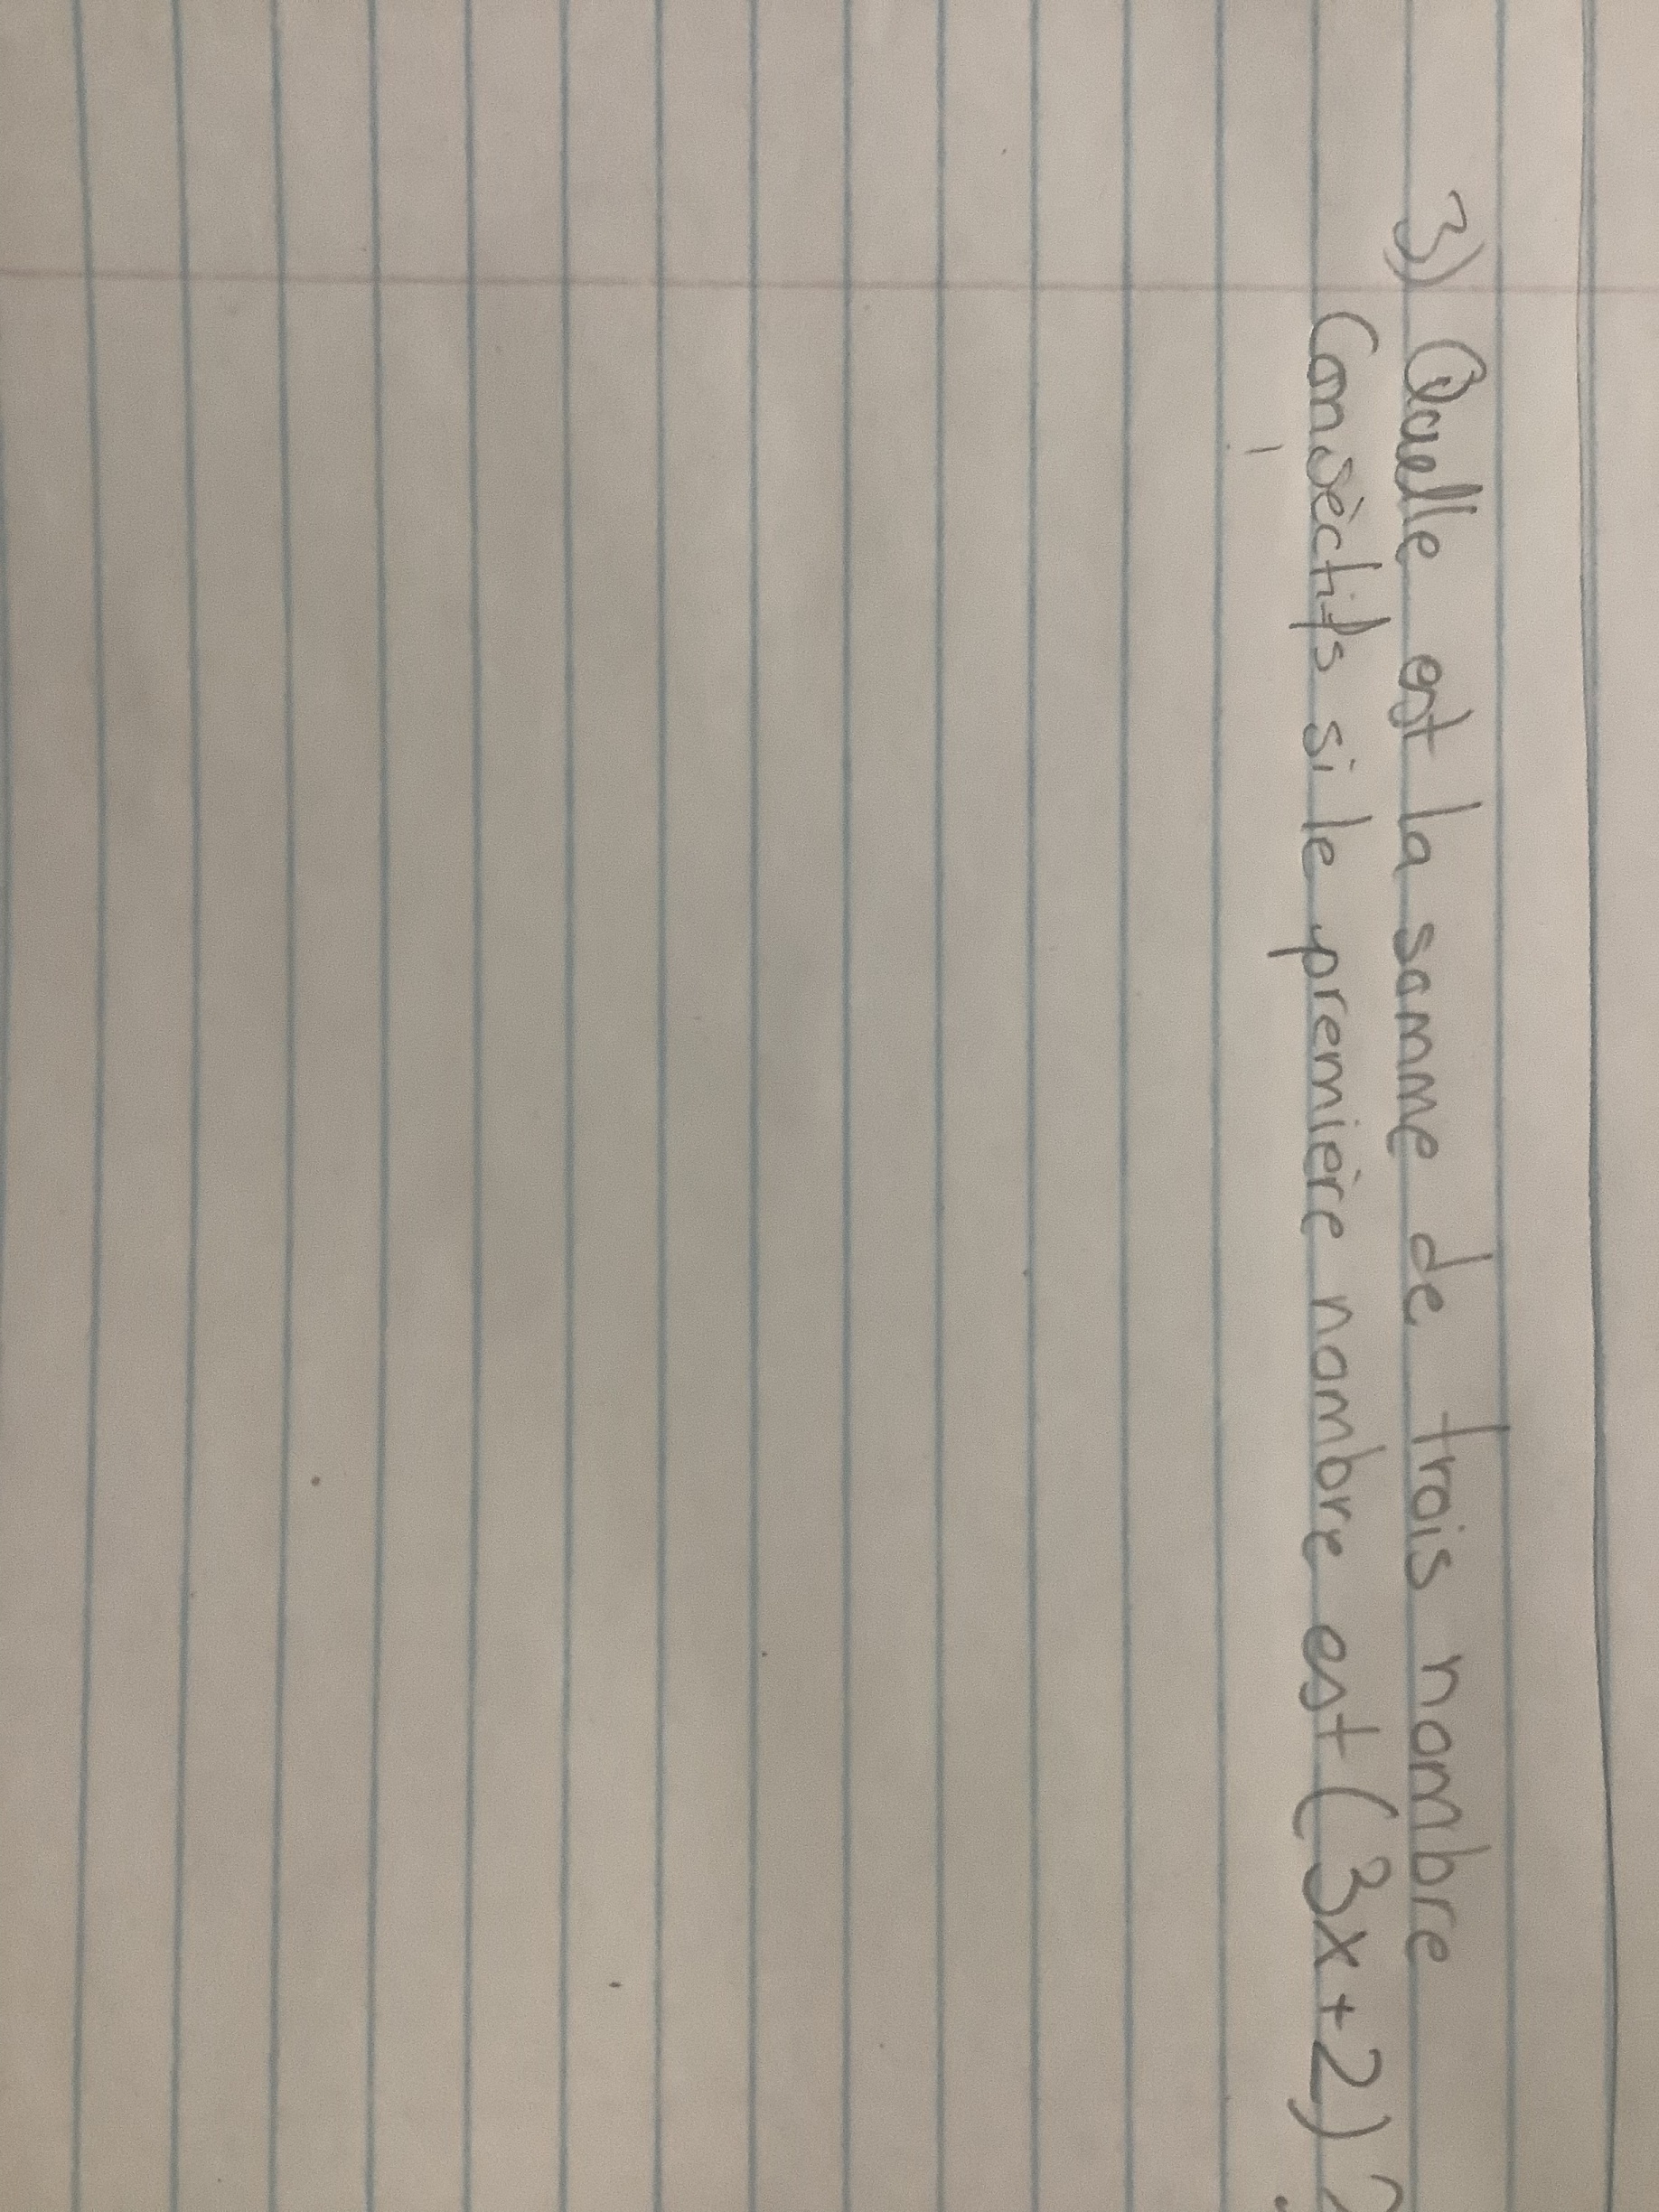 3) Quelle est la somme de trois nombre
Consèctifs si le première nombre est (3x+2)?